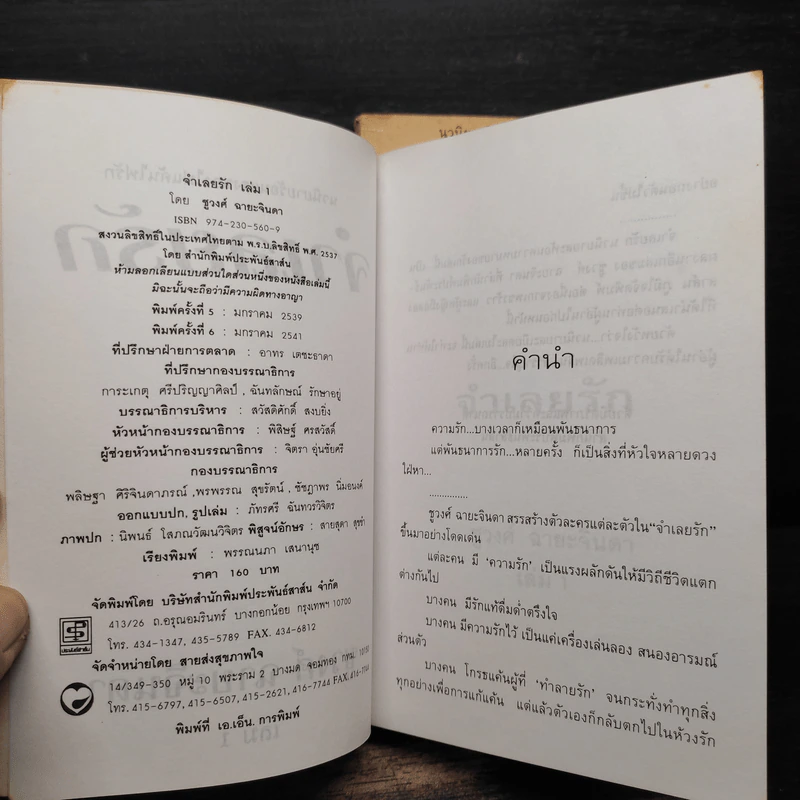 จำเลยรัก เล่ม 1
โดย ชูวงศ์ ฉายะจินดา
ISBN 974-230-560-9
สงวนลิขสิทธิ์ในประเทศไทยตาม พ.ร.บ.ลิขสิทธิ์ พ.ศ. 2537
โดย สำนักพิมพ์ประพันธ์สาส์น
ห้ามลอกเลียนแบบส่วนใดส่วนหนึ่งของหนังสือเล่มนี้
มิฉะนั้นจะถือว่ามีความผิดทางอาญา
พิมพ์ครั้งที่ 5 : มกราคม 2539
พิมพ์ครั้งที่ 6 : มกราคม 2541
ที่ปรึกษาฝ่ายการตลาด : อาทร เตชะธาดา
ที่ปรึกษากองบรรณาธิการ
การะเกตุ ศรีปริญญาศิลป์ , ฉันทลักษณ์ รักษาอยู่
บรรณาธิการบริหาร : สวัสดิศักดิ์ สงบยิ่ง
หัวหน้ากองบรรณาธิการ : พิสิษฐ์ ศรสวัสดิ์
ผู้ช่วยหัวหน้ากองบรรณาธิการ : จิตรา อุ่นชัยศรี
กองบรรณาธิการ
พลิษฐา ศิริจินดาภรณ์ , พรพรรณ สุขรัตน์ , ชัชฎาพร นิ่มอนงค์
ออกแบบปก, รูปเล่ม : ภัทรศรี ฉันทวรวิจิตร
ภาพปก : นิพนธ์ โสภณวัฒนวิจิตร พิสูจน์อักษร : สายสุดา
เรียงพิมพ์ : พรรณนภา เสนานุช
ราคา 160 บาท
จัดพิมพ์โดย บริษัทสำนักพิมพ์ประพันธ์สาส์น จำกัด
413/26 ถ.อรุณอมรินทร์ บางกอกน้อย กรุงเทพฯ 10700
โทร. 434-1347, 435-5789 FAX. 434-6812
จัดจำหน่ายโดย สายส่งสุขภาพใจ
14/349-350 หมู่ 10 พระราม 2 บางมด จอมทอง กทม. 10150
โทร. 415-6797, 415-6507, 415-2621, 416-7744 FAX.416-7744
พิมพ์ที่ เอ.เอ็น. การพิมพ์
คำนำ
ความรัก...บางเวลาก็เหมือนพันธนาการ
แต่พันธนาการรัก...หลายครั้ง ก็เป็นสิ่งที่หัวใจหลายดวง
ใฝ่หา...
...............
ชูวงศ์ ฉายะจินดา สรรสร้างตัวละครแต่ละตัวใน“จำเลยรัก”
ขึ้นมาอย่างโดดเด่น
แต่ละคน มี ‘ความรัก’ เป็นแรงผลักดันให้มีวิถีชีวิตแตก
ต่างกันไป
บางคน มีรักแท้ดื่มด่ำตรึงใจ
บางคน มีความรักไว้ เป็นแค่เครื่องเล่นลอง สนองอารมณ์
ส่วนตัว
บางคน โกรธแค้นผู้ที่ ‘ทำลายรัก’ จนกระทั่งทำทุกสิ่ง
ทุกอย่างเพื่อการแก้แค้น แต่แล้วตัวเองก็กลับตกไปในห้วงรัก